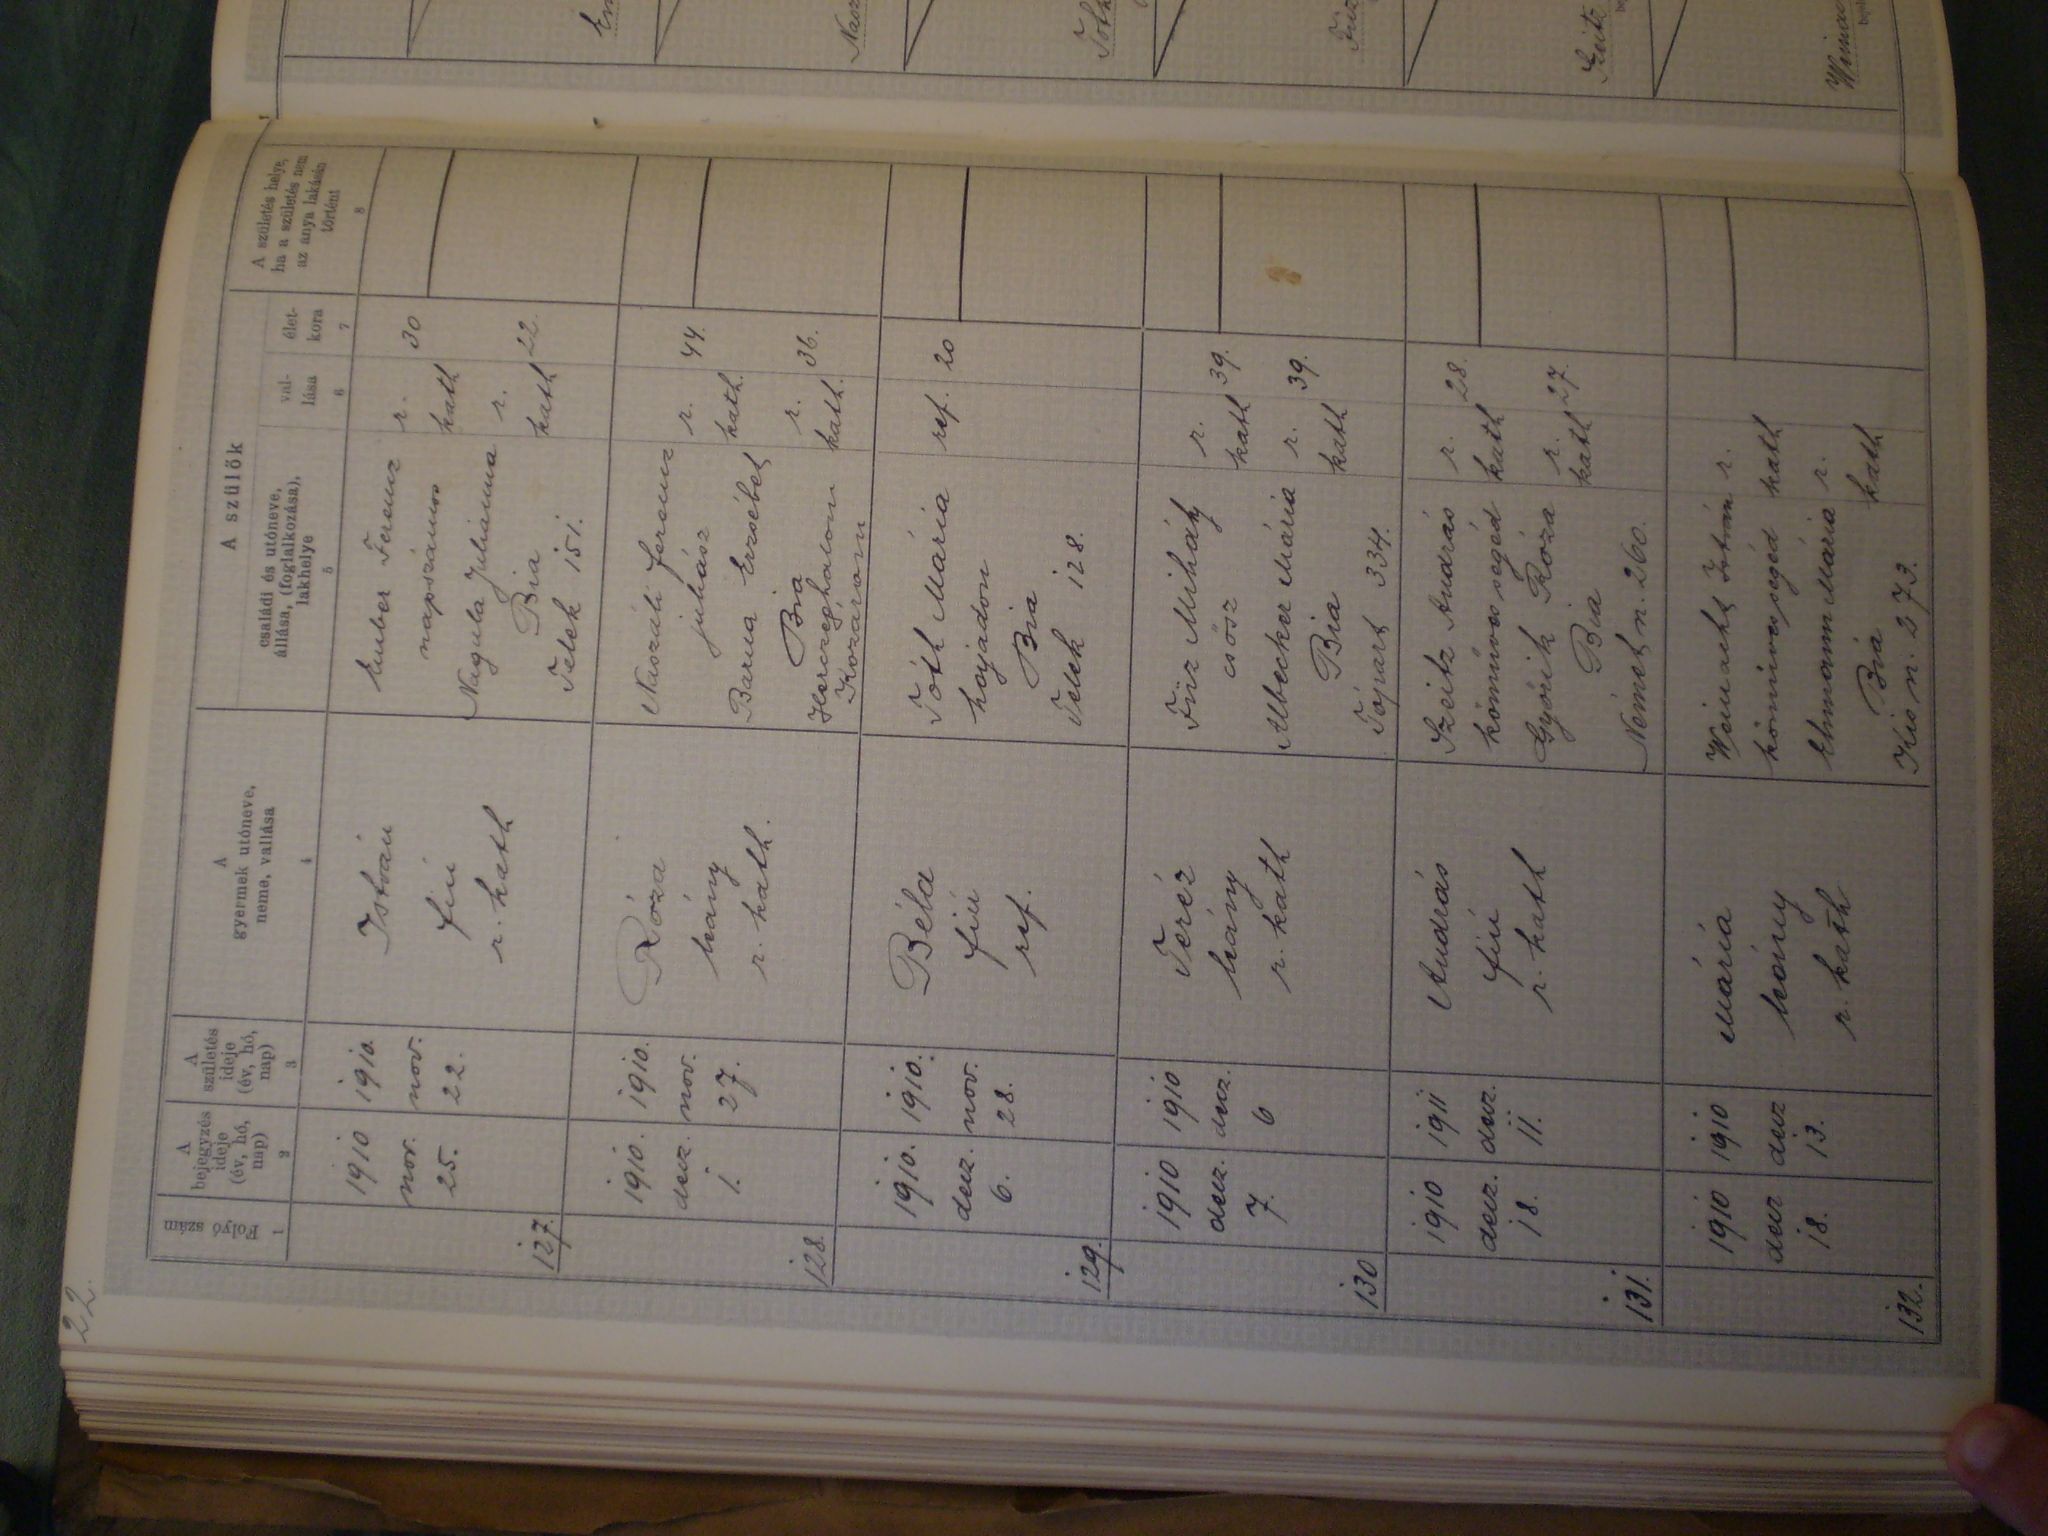 22.
Folyó szám
1
A
bejegyzés
ideje
(év, hó,
nap)
2
A
születés
ideje
(év, hó,
nap)
3
A
gyermek utóneve,
neme, vallása
4
A szülők
családi és utóneve,
állása, (foglalkozása),
lakhelye
5
val-
lása
6
élet-
kora
7
A születés helye,
ha a születés nem
az anya lakásán
történt
8
127.
1910
nov.
25.
1910.
nov.
22.
István
fiú
r. kath
Ember Ferencz
napszámos
Nagula Julianna
Bia
Telek 151.
r.
kath
r.
kath
30
22.
128.
1910.
decz.
1.
1910.
nov.
27.
Róza
leány
r. kath.
Naszáli Ferencz
juhász
Barna Erzsébet
Bia
Herczeghalom
Kozarom
r.
kath.
r.
kath.
44.
36.
129.
1910.
decz.
6.
1910.
nov.
28.
Béla
fiú
ref.
Tóth Mária
hajadon
Bia
Telek 128.
ref.
20
130
1910
decz.
7.
1910
decz.
6
Teréz
leány
r. kath
Füz Mihály
csősz
Albecker Mária
Bia
Tópart 334.
r.
kath
r.
kath
39.
39.
131.
1910
decz.
18.
1911
decz.
11.
András
fiú
r. kath
Szeitz András
kőműves segéd
Győrik Róza
Bia
Német u. 260.
r.
kath
r.
kath
28.
27.
132.
1910
decz
18.
1910
decz
13.
Mária
leány
r. kath
István
kőműves segéd
Ehmann Mária
Bia
Kis u. 273.
r.
kath
r.
kath